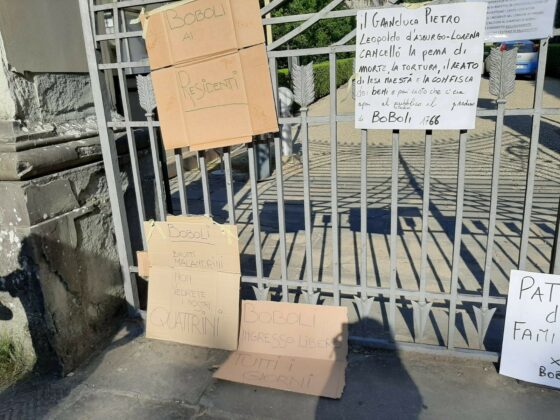 BOBOLI
AI
RESIDENTI
il GRANDUCA PIETRO
LEOPOLDO d'ASBURGO-LORENA
CANCELLÒ LA PENA di
MORTE, la TORTURA, il REATO
DI lesa MAESTÀ e la CONFISCA
dei BENI e più
al pubblico il giardino
di BOBOLI 1766
BOBOLI
BRUTTI
MALANDRINI
NON
VEDRETE
I NOSTRI
QUATTRINI
BOBOLI
INGRESSO LIBER
TUTTI i
GIORNI
PAT
d
FAMI
X
BOB